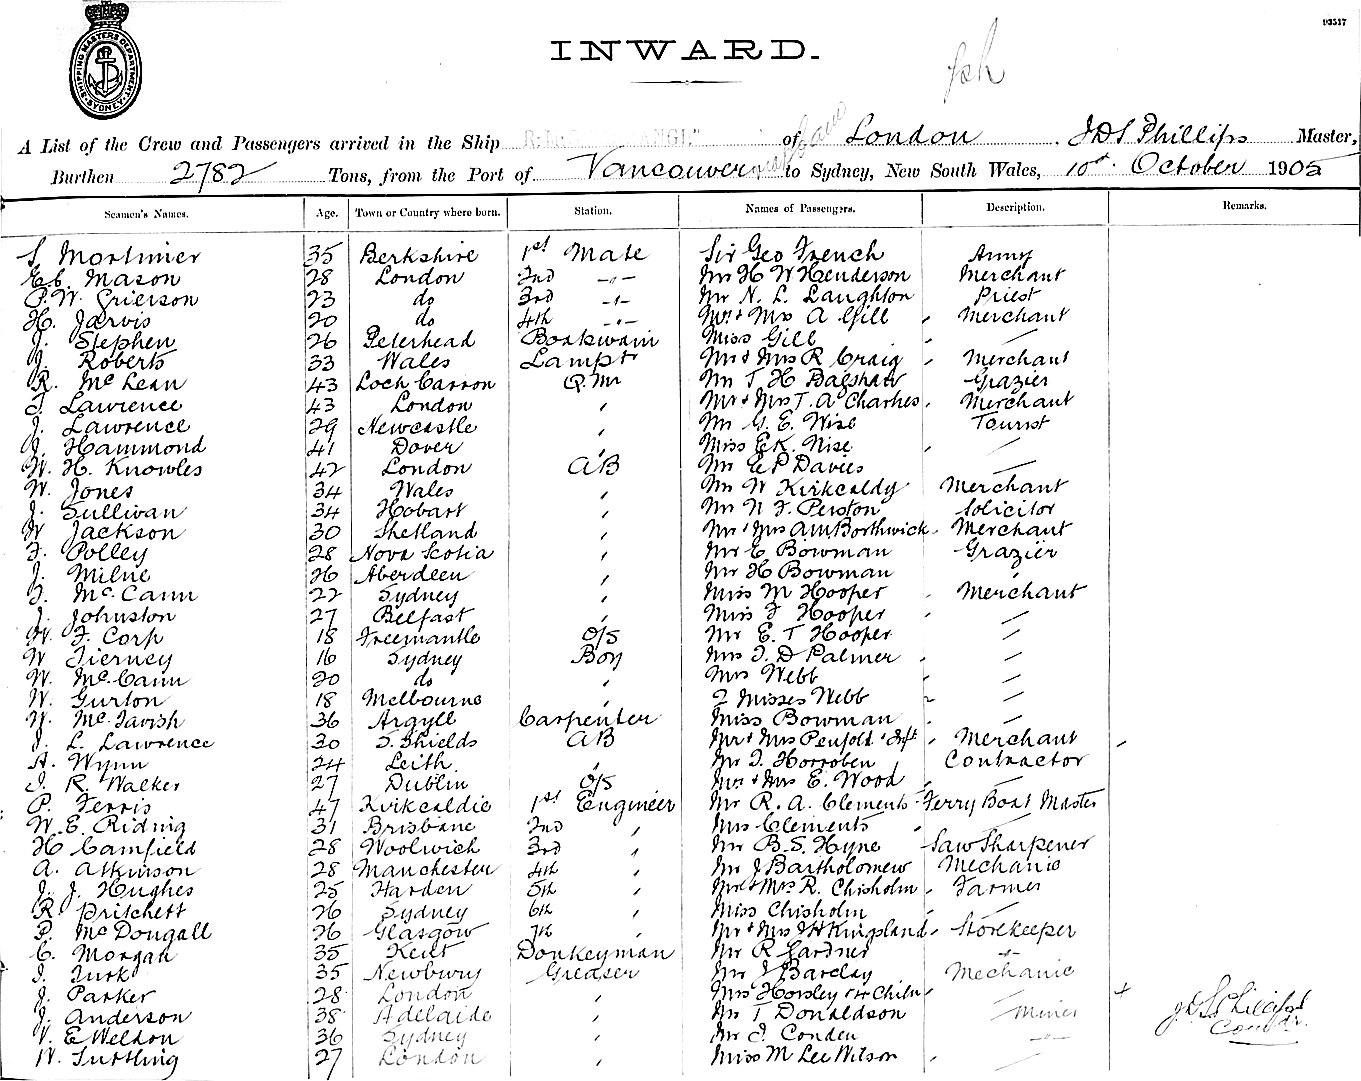 SHIPPING MASTERS DEPARTMENT SYDNEY
03517
INWARD.
A List of the Crew and Passengers arrived in the Ship of London J D S Phillips Master,
Burthen 2782 Tons, from the Port of Vancouver to Sydney, New South Wales, 10th October 1905
Seamen's Names. Age. Town or Country where born. Station. Names of Passengers. Description. Remarks.
S. Mortimer 35 Berkshire 1st Mate Sir Geo French Army
Mason 28 London 2nd -"- Mr H W Henderson Merchant
P. W. Grierson 23 do 3rd -"- Mr N. L. Laughton Priest
H. Jarvis 20 do 4th -"- Mr & Mrs A Gill Merchant
J. Stephen 26 Peterhead Boatswain Miss Gill
J. Roberts 33 Wales Lampt Mr & Mrs R Craig Merchant
R. McLean 43 Loch Carron Q. Mr Mr T H Bagshaw Grazier
T. Lawrence 43 London Mr & Mrs T. A Charles Merchant
J. Lawrence 29 Newcastle Mr G. E. Wise Tourist
J. Hammond 41 Dover Miss E K. Wise
W. H. Knowles 42 London AB Mr E P Davies
W. Jones 34 Wales Mr W Kirkcaldy Merchant
J. Sullivan 34 Hobart Mr N F. Perston Solicitor
W Jackson 30 Shetland Mr & Mrs A M Borthwick Merchant
F. Polley 28 Nova Scotia Mr E Bowman Grazier
J. Milne 26 Aberdeen Mr H Bowman
F. McCann 22 Sydney Miss M Hooper Merchant
J. Johnston 27 Belfast Miss F Hooper
W. F. Corp 18 Freemantle O/S Mr E. T Hooper
W Tierney 16 Sydney Boy Mrs I. D Palmer
W. McCann 20 do Mrs Webb
W. Gurton 18 Melbourne 2 Misses Webb
W. McTavish 36 Argyll Carpenter Miss Bowman
J. L. Lawrence 30 S. Shields AB Mr & Mrs Penfold & Inft Merchant
A. Wynn 24 Leith Mr J. Horroben Contractor
J. R. Walker 27 Dublin O/S Mr & Mrs E. Wood
P. Ferris 47 Kirkcaldie 1st Engineer Mr R. A. Clements Ferry Boat Master
W. E. Riding 31 Brisbane 2nd Mrs Clements
H Camfield 28 Woolwich 3rd Mr B. S. Hyne Saw Sharpener
A. Atkinson 28 Manchester 4th Mr J Bartholomew Mechanic
J. J. Hughes 25 Harden 5th Mr & Mrs R. Chisholm Farmer
R. Pritchett 26 Sydney 6th Miss Chisholm
P. McDougall 26 Glasgow 7th Mr & Mrs J H Kingsland Storekeeper
C. Morgan 35 Kent Donkeyman Mr R Gardner -"-
J. Turk 35 Newbury Greaser Mr J Barclay Mechanic
J. Parker 28 London Mrs Horsley & Chiln
J. Anderson 38 Adelaide Mr T Donaldson Miner
V. E Weldon 36 Sydney Mr J. Conden -"-
W. Suttling 27 London Miss M Lee Wilson
J D S Phillips
Comdr.